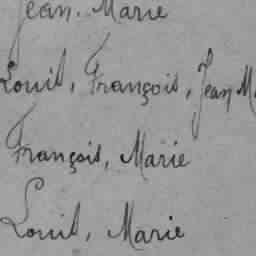 Jean. Marie
Louis, François, Jean M
François, Marie
Louis, Marie